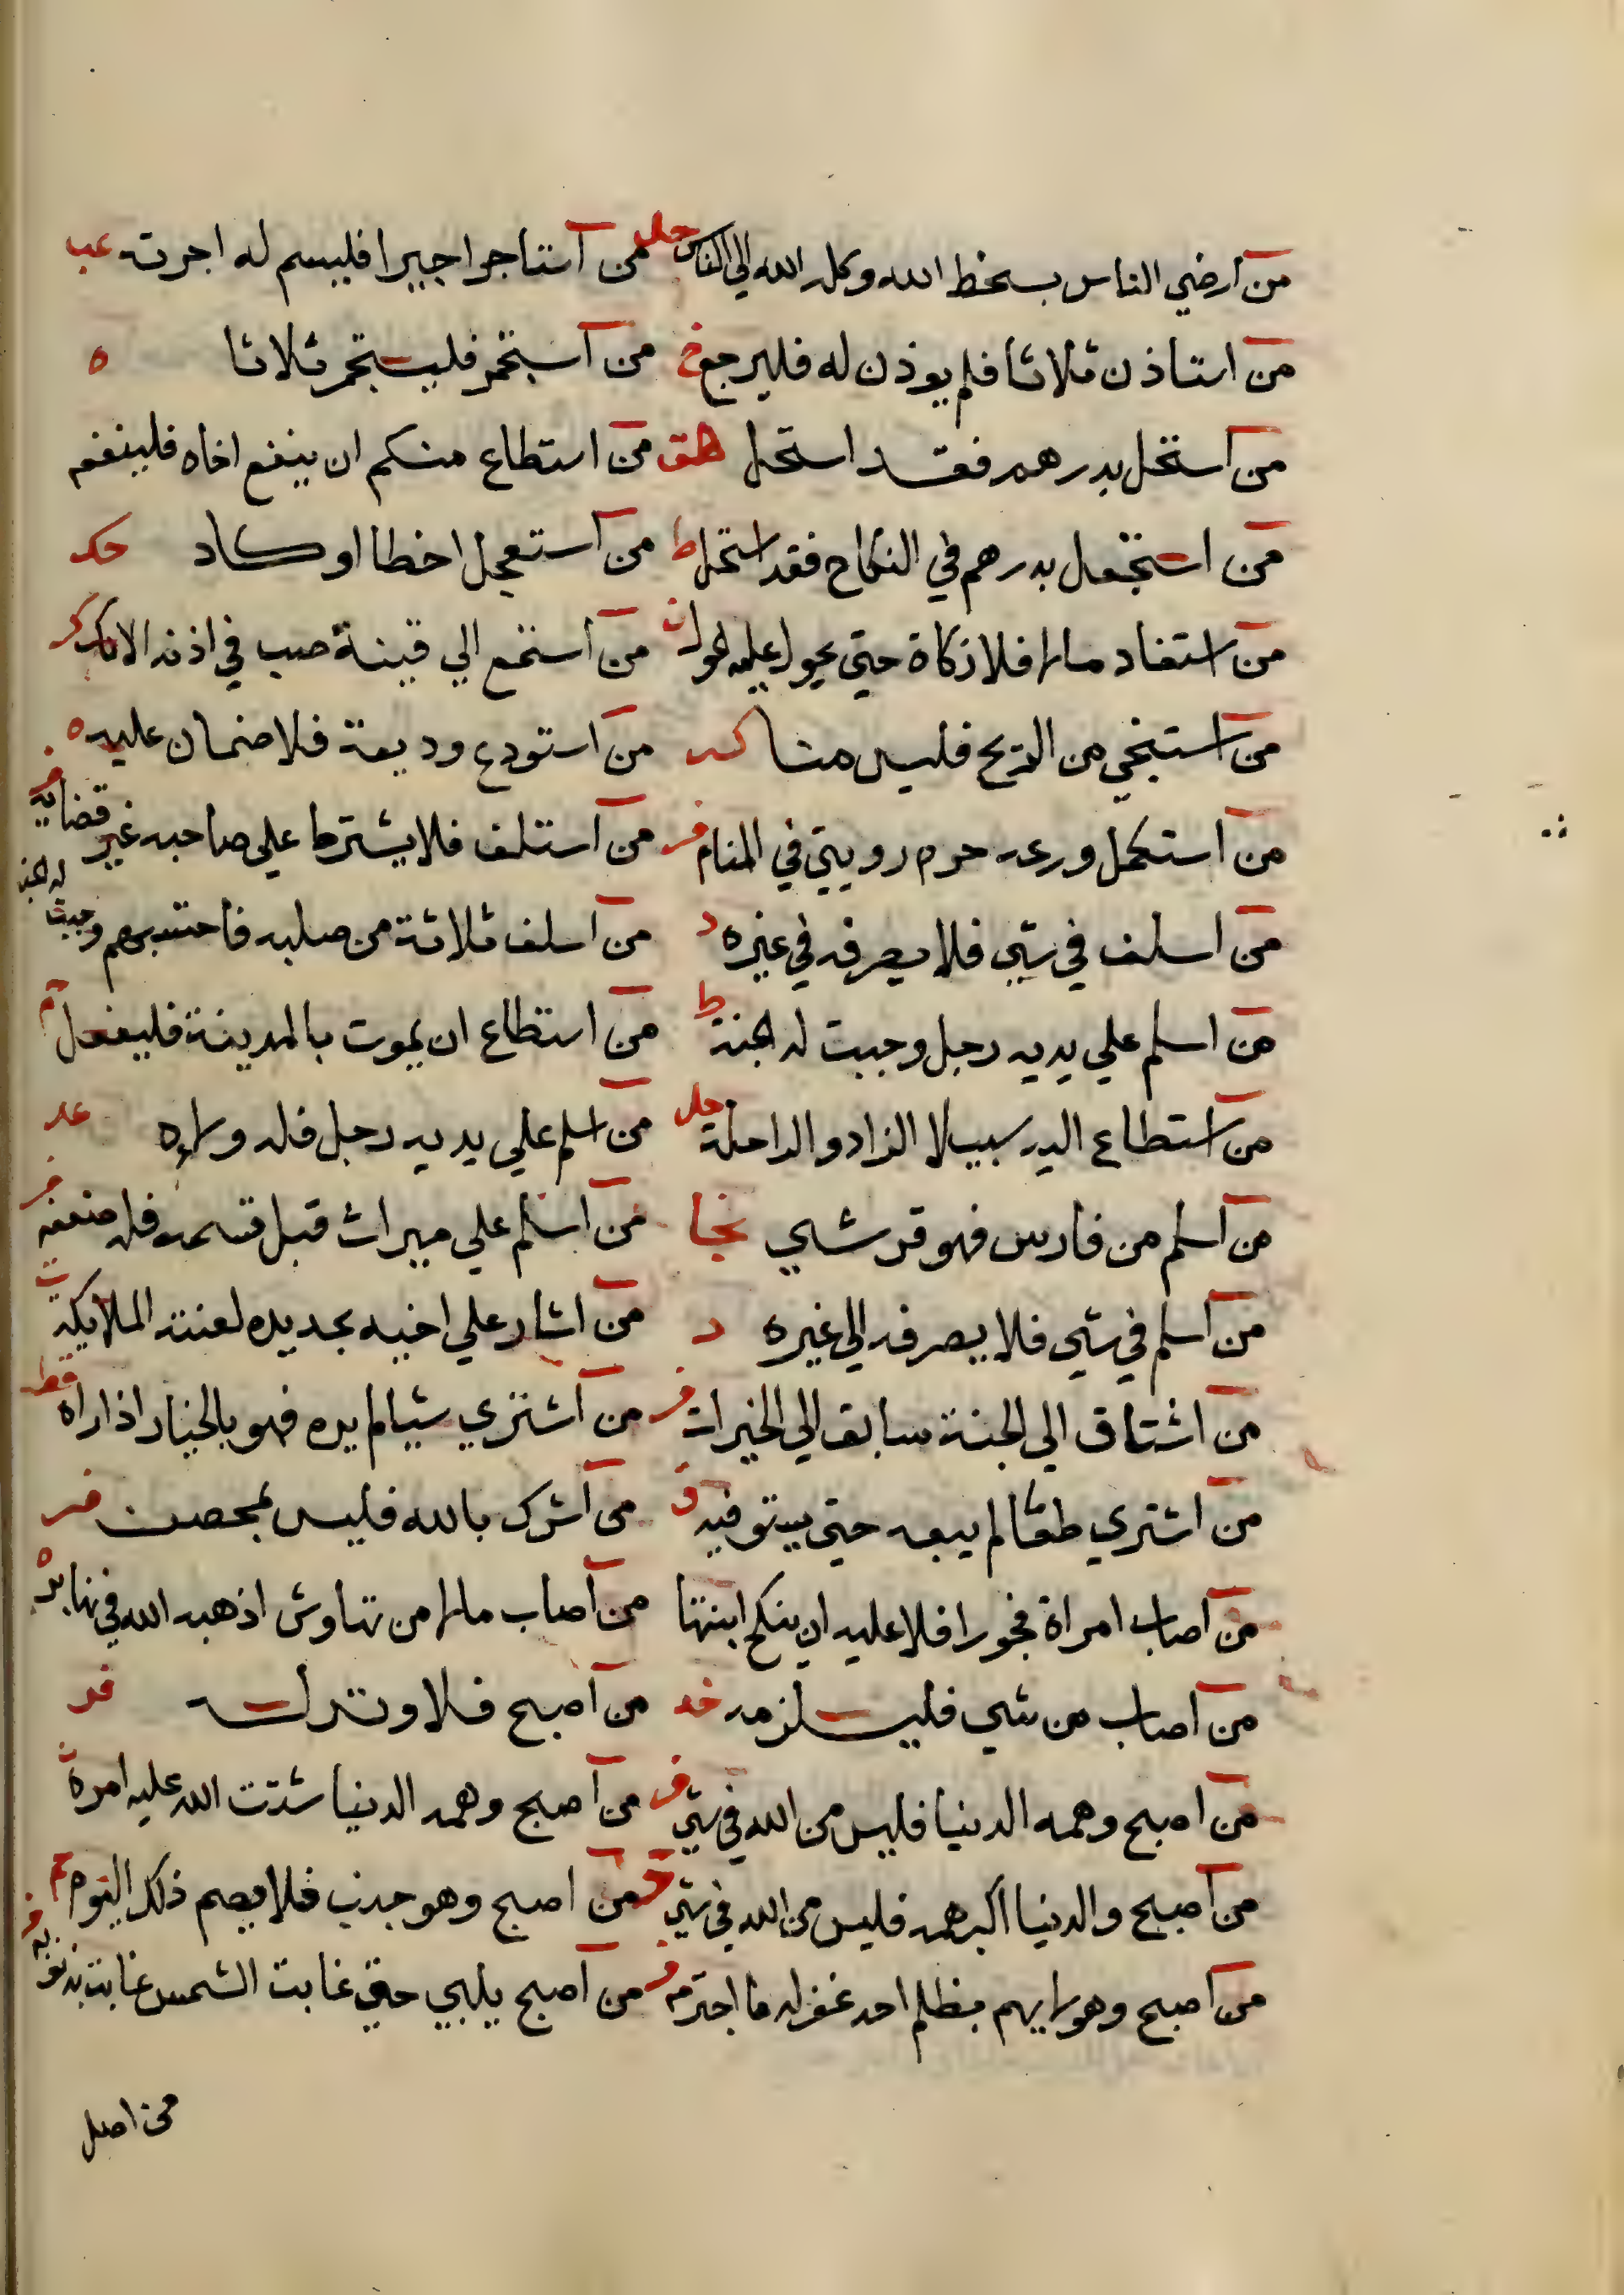 من ارضي الناس بسخط الله وكله الله الي الناس حل من استاجر اجيرا فليسم له اجرته عب
من استاذن ثلاثا فلم يوذن له فليرجع خ من استجمر فليستجمر ثلاثا ه
من استحل بدرهم فقد استحل هق من استطاع منكم ان ينفع اخاه فلينفعه
من استحل بدرهم في النكاح فقد استحل ط من استعجل اخطا او كاد حك
من استفاد مالا فلا زكاة حتي يحول عليه الحول ت من استمع الي قينة صب في اذنه الانك كر
من استنجي من الريح فليس منا كر من استودع وديعة فلا ضمان عليه ه
من استكمل ورعه حرم روييتي في المنام فر من استلف فلا يشترط علي صاحبه غير قضايه فر
من اسلف في شي فلا يصرفه في غيره د من اسلف ثلاثة من صلبه فاحتسبهم وجبت له الجنة
من اسلم علي يديه رجل وجبت له الجنة ط من استطاع ان يموت بالمدينة فليفعل م
من استطاع اليه سبيلا الزاد والراحلة حل من اسلم علي يديه رجل فله ولاوه عد
من اسلم من فارس فهو قرشي نجا من اسلم علي ميراث قبل قسمه فله
من اسلم في شي فلا يصرفه الي غيره د من اشار علي اخيه بحديده لعنته الملايكة ت
من اشتاق الي الجنة سابق الي الخيرات فر من اشتري شيا لم يره فهو بالخيار اذا راه قط
من اشتري طعاما لم يبعه حتي يستوفيه ق من اشرك بالله فليس بمحصن فر
من اصاب امراة فجورا فلا عليه ان ينكح ابنتها من اصاب مالا من نهاوش اذهبه الله في نهابر
من اصاب من شي فليلزمه من اصبح فلا وتر له فد
من اصبح وهمه الدنيا فليس من الله في شي فر من اصبح وهمه الدنيا شتت الله عليه امره
من اصبح والدنيا اكبر همه فليس من الله في شي من اصبح وهو جنب فلا يصم ذلك اليوم م
من اصبح وهو لا يهم بظلم احد غفر له ما اجترم فر من اصبح يلبي حتي غابت الشمس غابت بذنوبه
من اصل